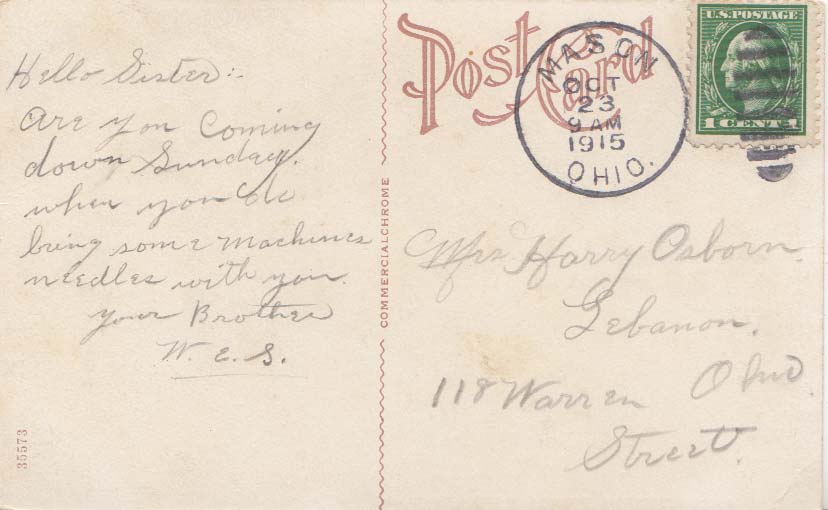 Hello Sister:-
are you coming
down Sunday.
when you do
bring some machines
needles with you.
your Brother
W. E. S.
35573
COMMERCIALCHROME
Post Card
MASON
OCT
23
9 AM
1915
OHIO.
U.S. POSTAGE
1 CENT 1
Mrs Harry Osborn.
Lebanon.
118 Warren Ohio.
Street.